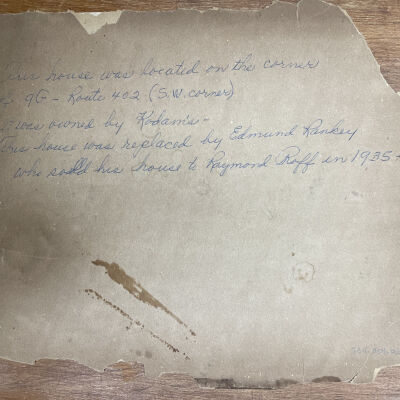 This house was located on the corner
9G - Route 402 (S.W. corner)
It was owned by Kodams -
This house was replaced by Edmund Rankey
who sold his house to Raymond Roff in 1935